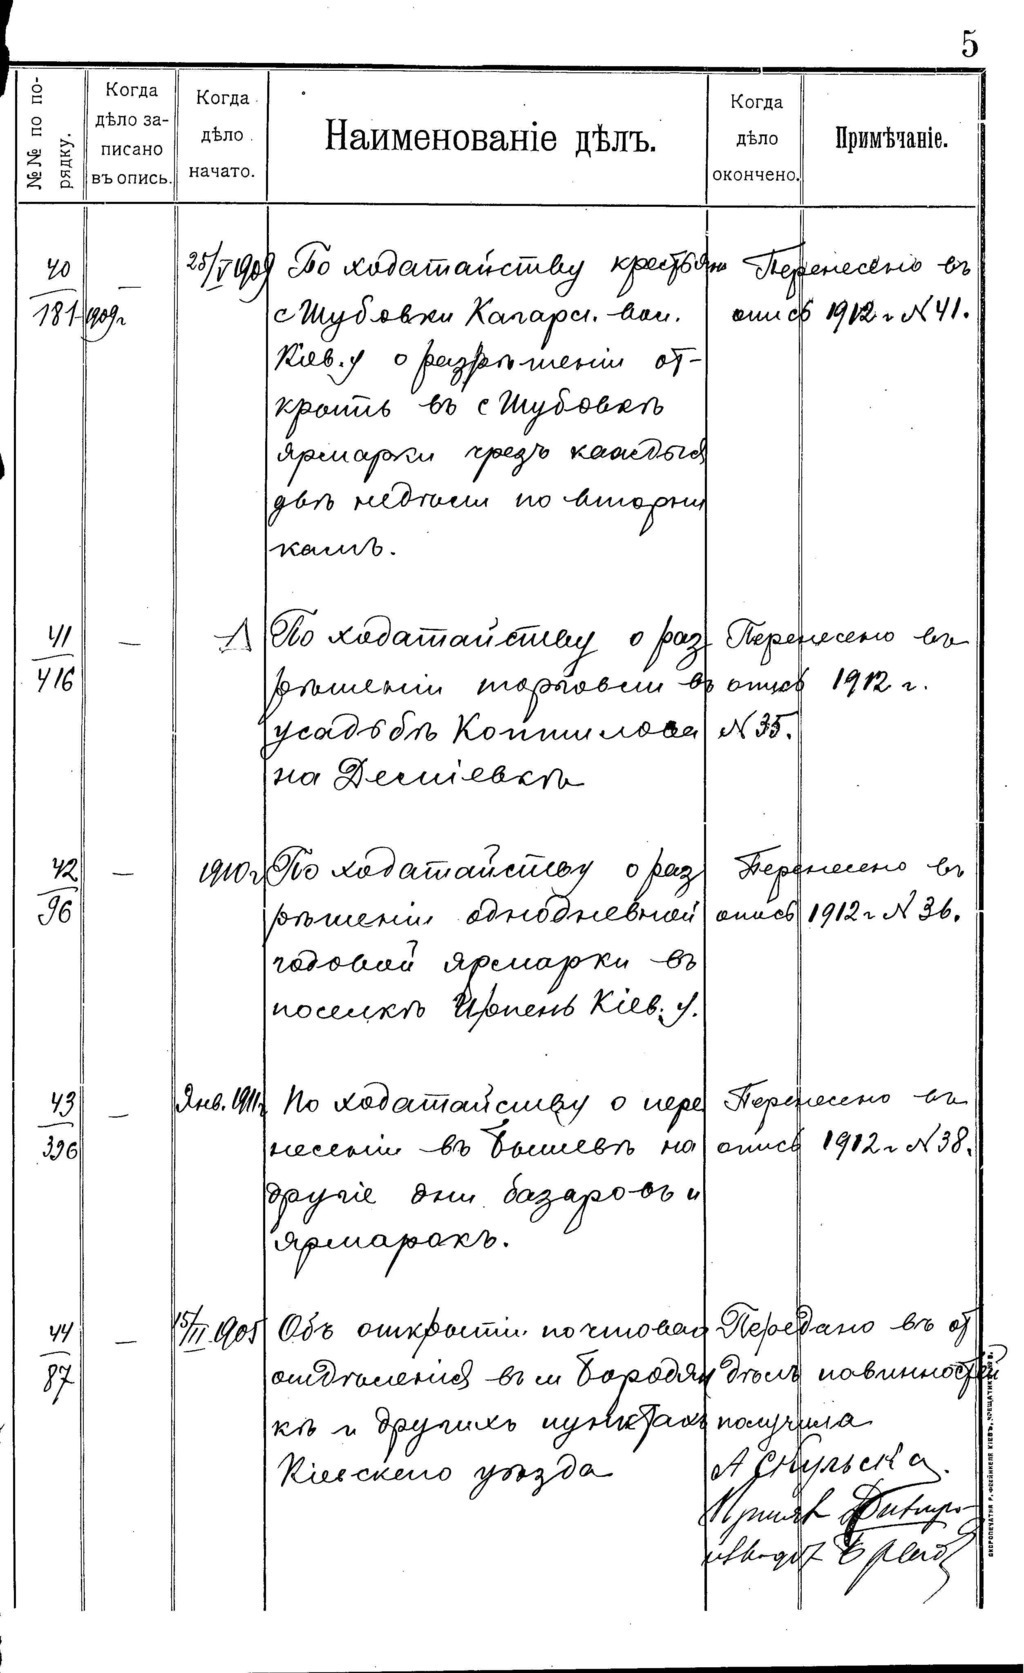 5
№№ по по-
рядку.
Когда
дѣло за-
писано
въ опись.
Когда
дѣло
начато.
Наименованіе дѣлъ.
Когда
дѣло
окончено.
Примѣчаніе.
40
181
1909г
25/V 1909
По ходатайству крестьян
с Шубовки Кагарл. вол.
Кіев. у о разрѣшеніи от-
крыть въ с Шубовкѣ
ярмарки чрезъ каждыя
двѣ недѣли по вторни
камъ.
Перенесено въ
опись 1912 г N 41.
41
416
—
По ходатайству о раз
рѣшеніи торговли въ
усадьбѣ
на Деміевкѣ
Перенесено въ
опись 1912 г.
N 35.
42
96
—
1910 г
По ходатайству о раз
рѣшеніи однодневной
годовой ярмарки въ
поселкѣ Ирпень Кіев. у.
Перенесено въ
опись 1912 г N 36.
43
396
—
Янв. 1911 г
По ходатайству о пере
несеніи въ Бышевѣ на
другіе дни базаровъ и
ярмарокъ.
Перенесено въ
опись 1912 г N 38.
44
87
—
15/II 1905
Объ открытіи почтоваго
отдѣленія въ м Бородян
кѣ и другихъ пунктахъ
Кіевскаго уѣзда
Передано въ от
дѣлъ повинностей
получила
А Скульска.